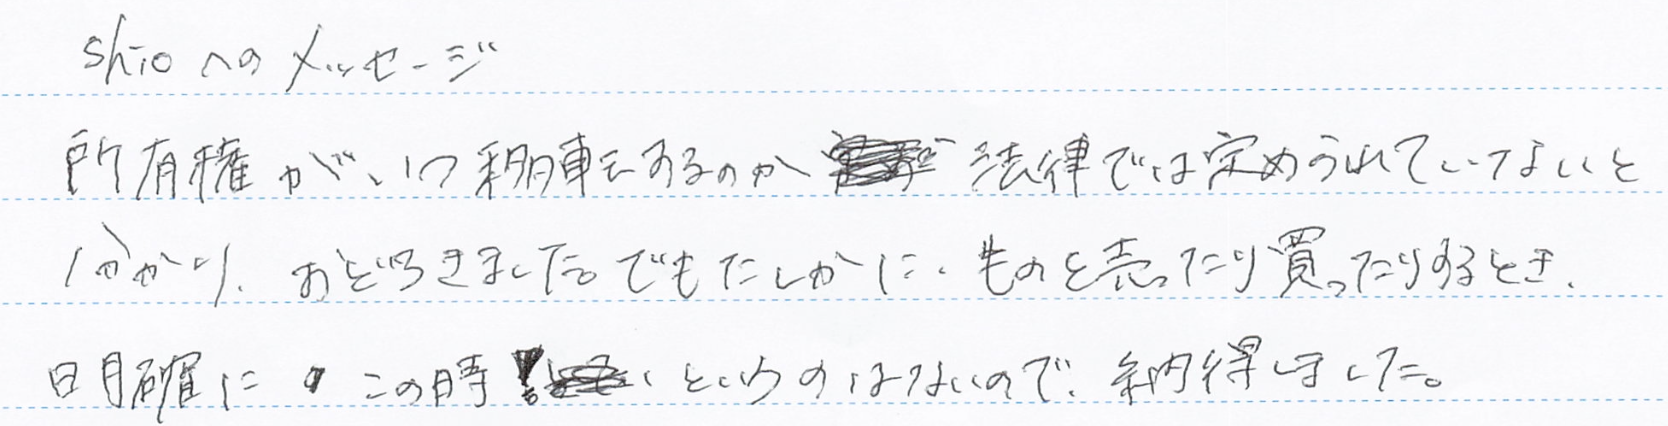 shioへのメッセージ
所有権が、いつ移転をするのか 法律では定められていないと
分かり、おどろきました。でもたしかに、ものを売ったり買ったりするとき、
明確に この時! というのはないので、納得しました。